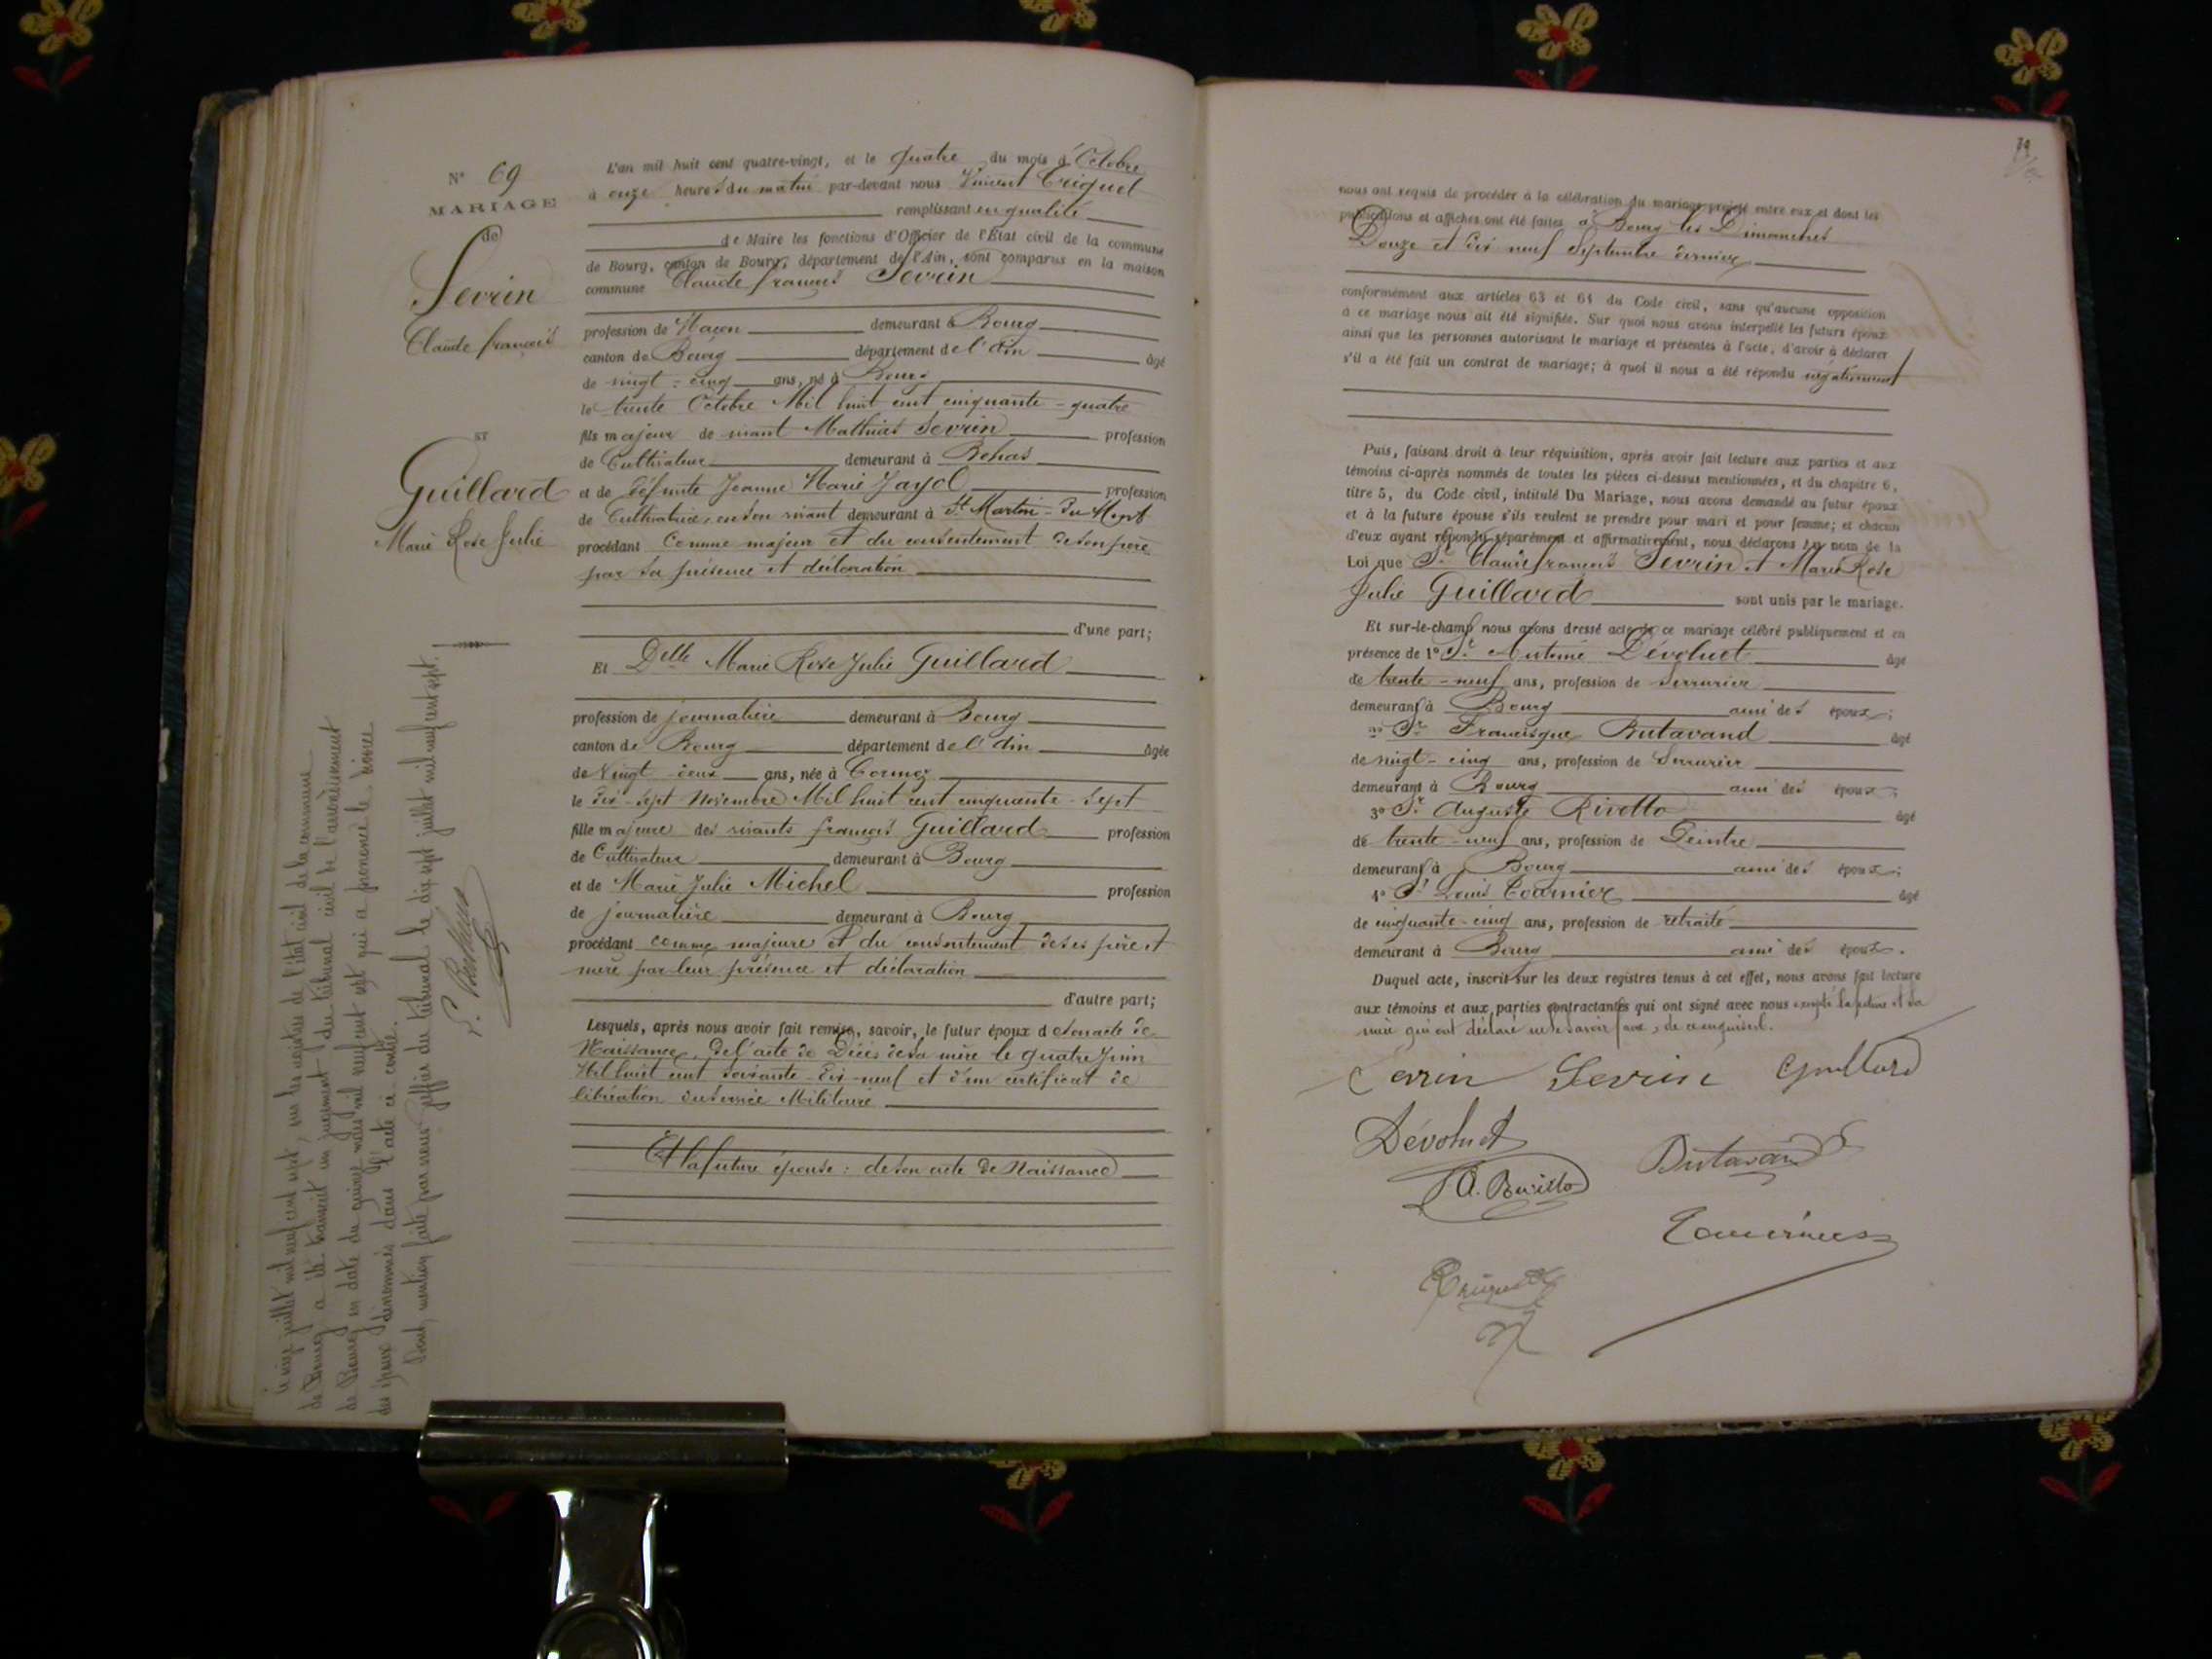 N° 69
MARIAGE
de
Sevrin
Claude françois
ET
Guillard
Marie Rose Julie
L'an mil huit cent quatre-vingt, et le quatre du mois d'Octobre
à onze heures du matin par-devant nous Vincent
remplissant en qualité
de Maire les fonctions d'Officier de l'État civil de la commune
de Bourg, canton de Bourg, département de l'Ain, sont comparus en la maison
commune Claude françois Sevrin
profession de Maçon demeurant à Bourg
canton de Bourg département de l'Ain âgé
de vingt-cinq ans, né à Bourg
le trente Octobre Mil huit cent cinquante-quatre
fils majeur de vivant Mathias Sevrin profession
de Cultivateur demeurant à
et de défunte Jeanne Marie Jayol profession
de Cultivatrice, en son vivant demeurant à St Martin-du-Mont
procédant comme majeur et du consentement de son père
par sa présence et déclaration
d'une part;
Et Delle Marie Rose Julie Guillard
profession de journalière demeurant à Bourg
canton de Bourg département de l'Ain âgée
de Vingt-deux ans, née à Cormoz
le dix-sept Novembre Mil huit cent cinquante-sept
fille majeure des vivants françois Guillard profession
de Cultivateur demeurant à Bourg
et de Marie Julie Michel profession
de journalière demeurant à Bourg
procédant comme majeure et du consentement de ses père et
mère par leur présence et déclaration
d'autre part;
Lesquels, après nous avoir fait remise, savoir, le futur époux de son acte de
Naissance, de l'acte de Décès de sa mère le quatre Juin
Mil huit cent soixante-dix-neuf et d'un certificat de
libération du service Militaire
Et la future épouse: de son acte de Naissance
Le juillet mil neuf cent sept, sur les registres de l'état civil de la commune
de Bourg a été transcrit un jugement du tribunal civil de l'arrondissement
de Bourg en date du quinze mil neuf cent sept qui a prononcé le divorce
des époux dénommés dans l'acte ci-contre.
Dont mention faite par nous greffier du tribunal le dix sept juillet mil neuf cent sept.
79
nous ont requis de procéder à la célébration du mariage projeté entre eux et dont les
publications et affiches ont été faites à Bourg les Dimanches
Douze et dix neuf Septembre dernier
conformément aux articles 63 et 64 du Code civil, sans qu'aucune opposition
à ce mariage nous ait été signifiée. Sur quoi nous avons interpellé les futurs époux
ainsi que les personnes autorisant le mariage et présentes à l'acte, d'avoir à déclarer
s'il a été fait un contrat de mariage; à quoi il nous a été répondu négativement
Puis, faisant droit à leur réquisition, après avoir fait lecture aux parties et aux
témoins ci-après nommés de toutes les pièces ci-dessus mentionnées, et du chapitre 6,
titre 5, du Code civil, intitulé Du Mariage, nous avons demandé au futur époux
et à la future épouse s'ils veulent se prendre pour mari et pour femme; et chacun
d'eux ayant répondu séparément et affirmativement, nous déclarons au nom de la
Loi que Sr Claude françois Sevrin et Marie Rose
Julie Guillard sont unis par le mariage.
Et sur-le-champ nous avons dressé acte de ce mariage célébré publiquement et en
présence de 1° Sr Antoine Dévoluet âgé
de trente-neuf ans, profession de Serrurier
demeurant à Bourg ami des époux;
2° Sr Francisque Butavand âgé
de vingt-cinq ans, profession de Serrurier
demeurant à Bourg ami des époux;
3° Sr Auguste Rivetto âgé
de trente-neuf ans, profession de Peintre
demeurant à Bourg ami des époux;
4° Sr Louis âgé
de cinquante-cinq ans, profession de retraité
demeurant à Bourg ami des époux.
Duquel acte, inscrit sur les deux registres tenus à cet effet, nous avons fait lecture
aux témoins et aux parties contractantes qui ont signé avec nous excepté la future et sa
mère qui ont déclaré ne le savoir faire, de ce enquises.
Sevrin Sevrin Guillard
Dévoluet
Butavand